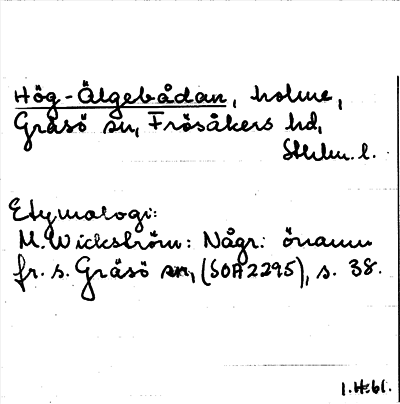 Hög-Älgebådan, holme,
Gräsö sn, Frösåkers hd,
Sthlm. l.
Etymologi:
M. Wickström: Någr. önamn
fr. s. Gräsö sn, (SOA 2295), s. 38.